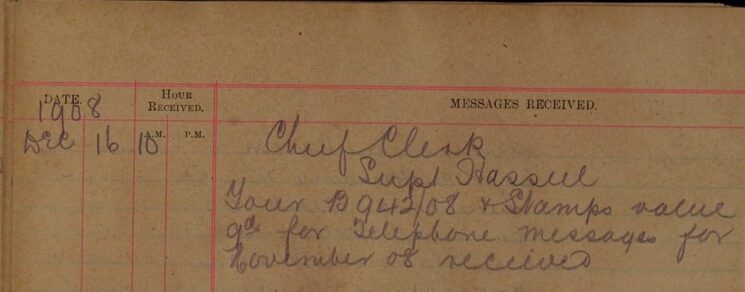 DATE.
HOUR RECEIVED.
MESSAGES RECEIVED.
1908
DEC 16 10 A.M. P.M.
Chief Clerk
Supt Hassell
Your B 942/08 & Stamps value
9d for Telephone messages for
November 08 received